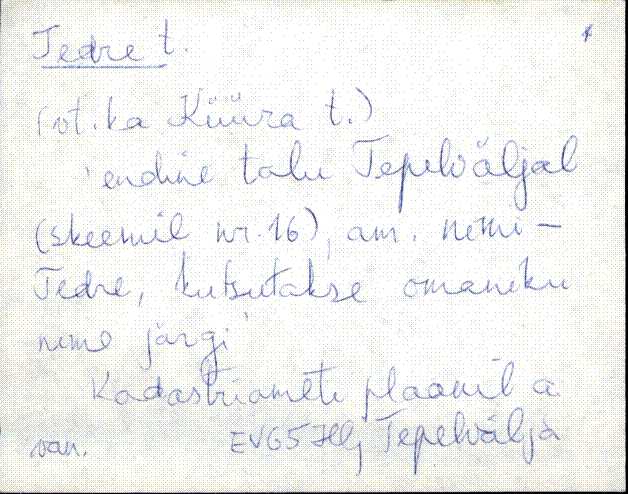 Tedre t.
(vt. ka Küüra t.)
'endine talu Tepelväljal
(skeemil nr. 16), am. nimi –
Tedre, kutsutakse omaniku
nime järgi'
Kadastriameti plaanil a.
van. Tepelvälja